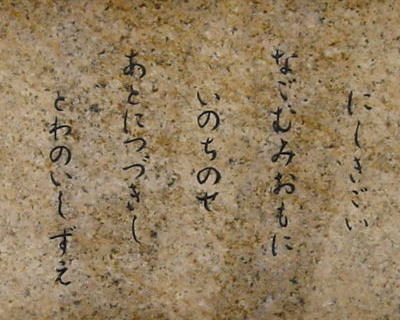 にしきごい
なごむみおもに
いのちのせ
あとにつづきし
とわのいしずえ